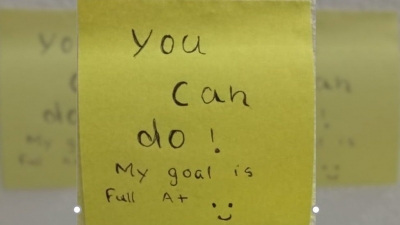 You
Can
do!
My goal is
Full A+ :)